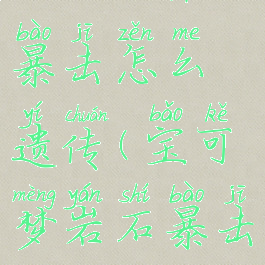 bào jī zěn me
暴击怎么
yí chuán bǎo kě
遗传(宝可
mèng yán shí bào jī
梦岩石暴击